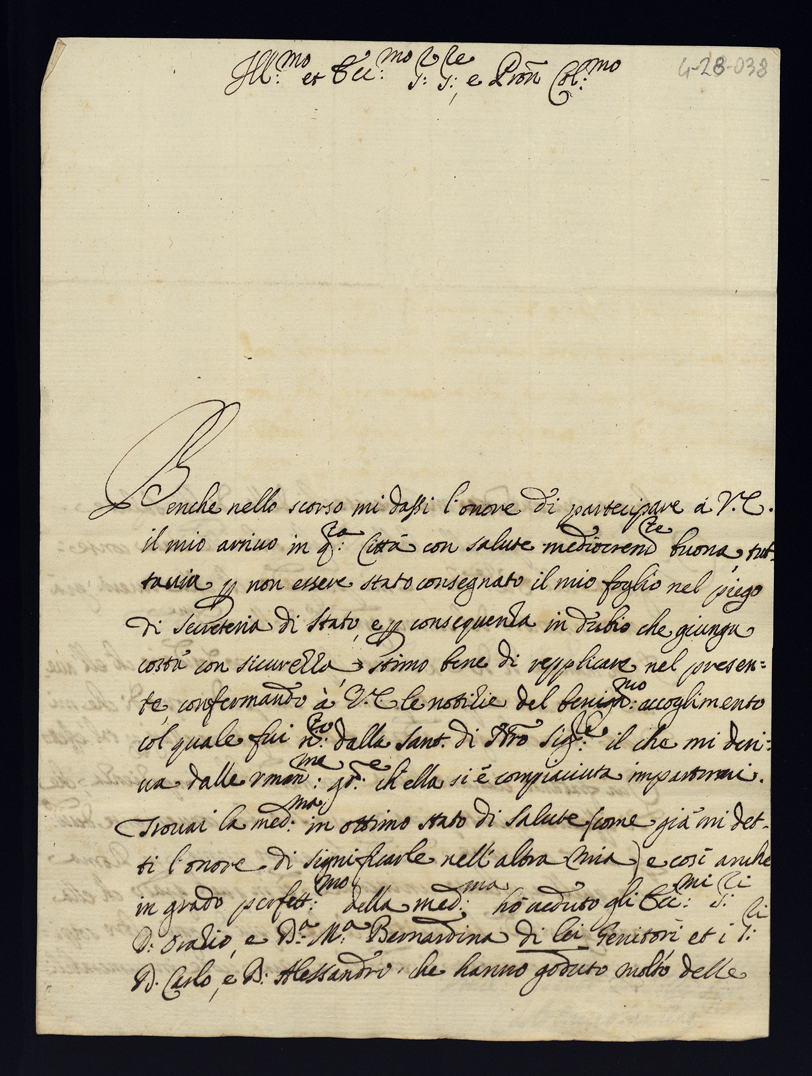 4-28-038
Ill:mo et Ecc:mo S:re S:re e Pron Col:mo
Benche nello scorso mi dassi l'onore di partecipare à V.E.
il mio arriuo in q:ta Città con salute mediocremte buona, tut-
tauia p non essere stato consegnato il mio foglio nel piego
di secreteria di stato, e p conseguenza in dubio che giunga
costà con sicurezza, stimo bene di repplicare nel presen=
te, confermando à V.E. le notizie del benign:mo accoglimento
col quale fui r:to dalla Sant. di Nro Sig:re il che mi deri=
ua dalle :me gr:e ch'ella si è compiaciuta impartirmi.
Trouai la med:ma in ottimo stato di salute (come già mi det-
ti l'onore di significarle nell'altra mia) e così anche
in grado perfett:mo della med:ma hò ueduto gli Ecc:mi S:ri
D: Oratio, e D:a M:a Bernardina di lei Genitori et i S:ri
D. Carlo, e D. Alessandro che hanno goduto molto delle